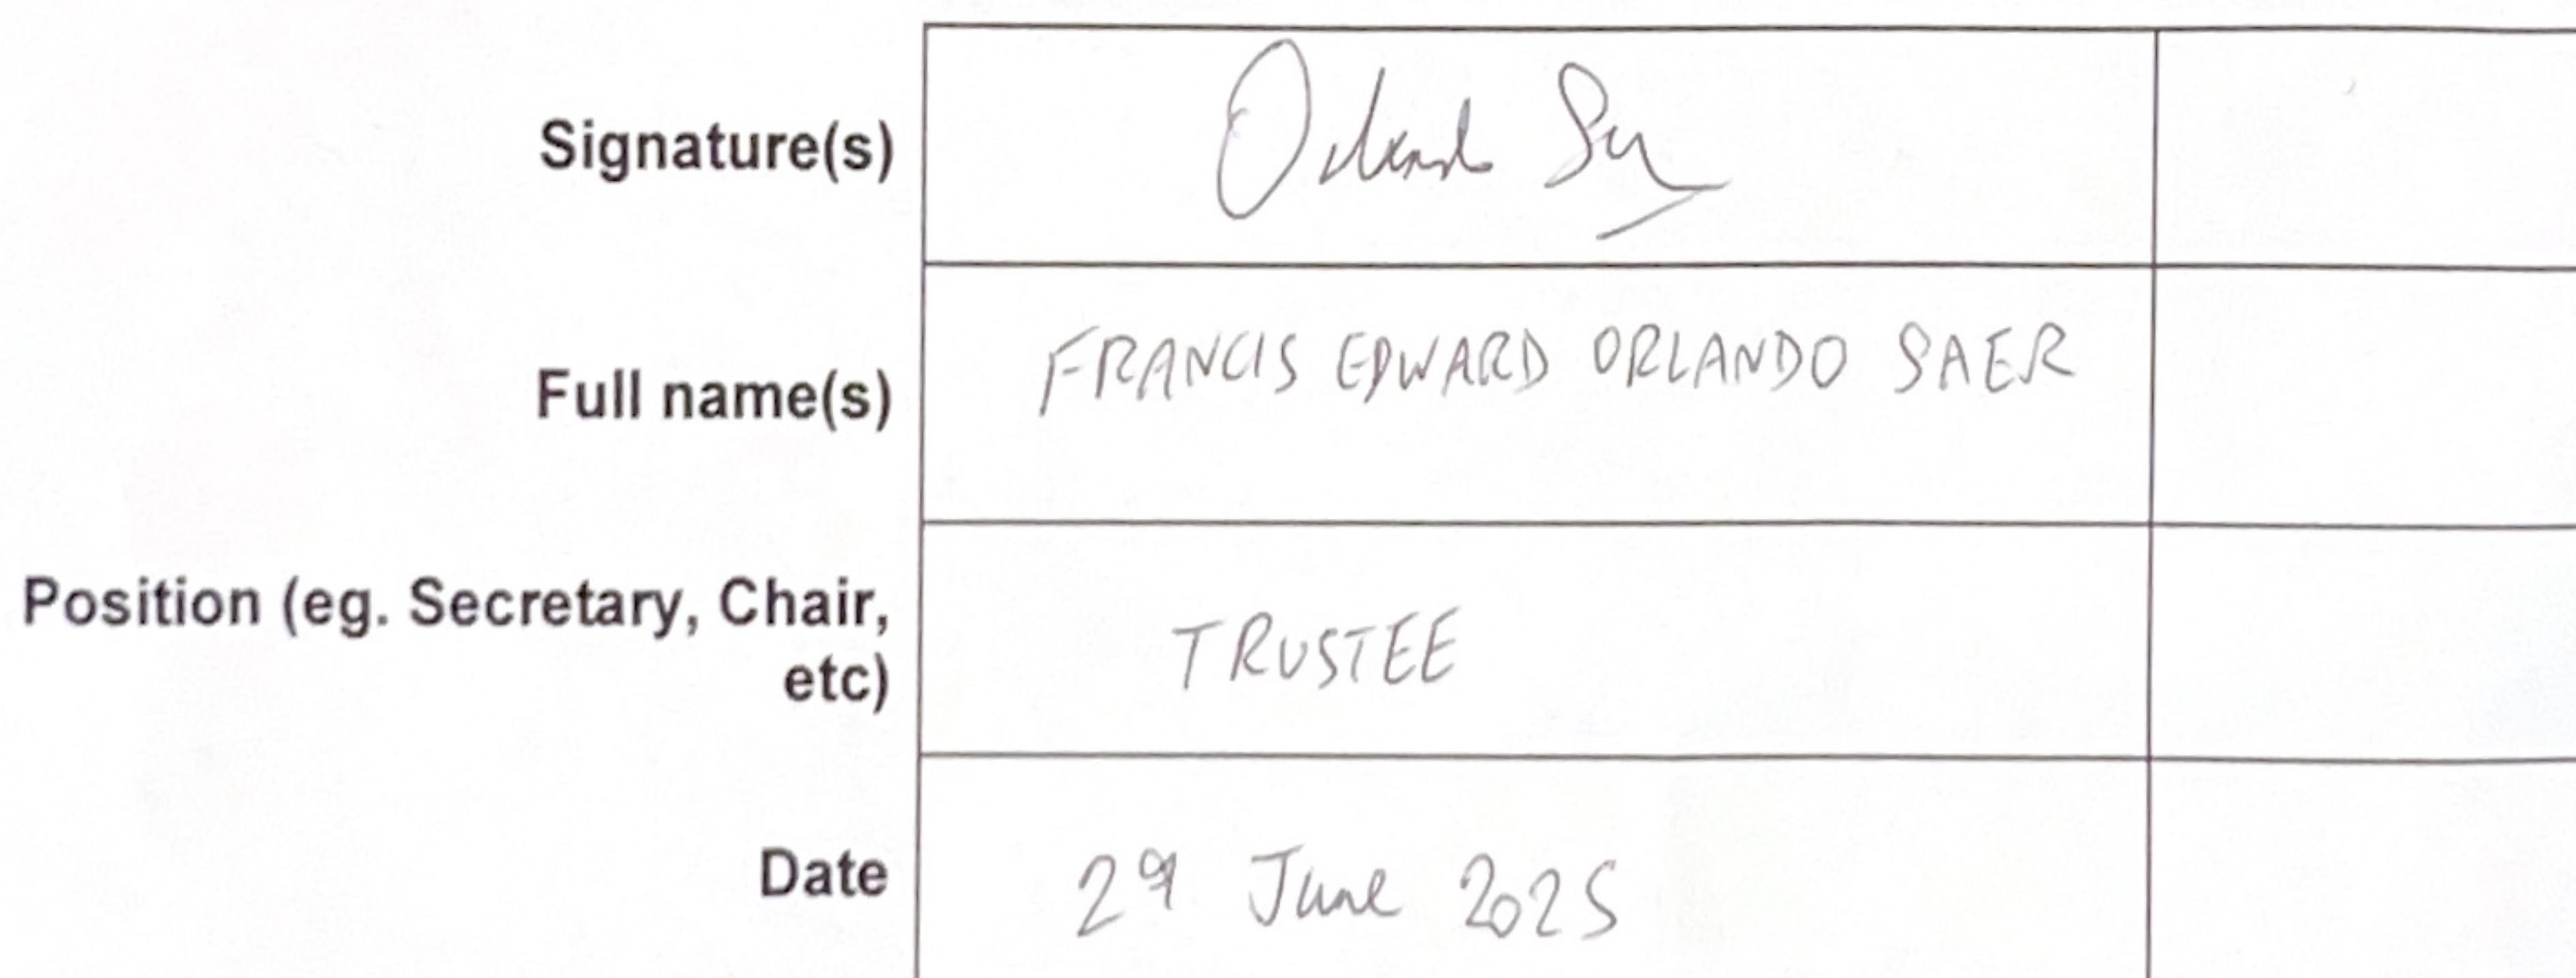 Signature(s) Orlando Saer
Full name(s) FRANCIS EDWARD ORLANDO SAER
Position (eg. Secretary, Chair,
etc) TRUSTEE
Date 29 June 2025